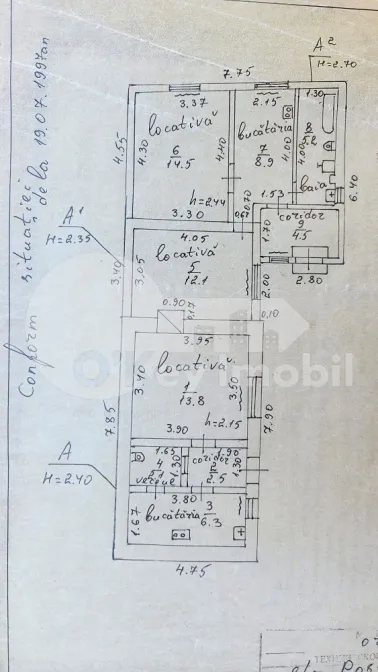 Conform situației
de la 19.07.1997 an
A²
H=2.70
7.75
3.37
2.15
1.30
locativă
bucătăria
4.55
4.30
4.40
4.00
4.00
6
14.5
7
8.9
8
5.2
baia
6.40
h=2.44
0.70
0.67
1.53
3.30
coridor
9
4.5
1.70
A¹
H=2.35
4.05
locativă
3.40
3.05
5
12.1
2.00
2.80
0.90
0.17
0.10
OKeyImobil
3.95
locativă
3.40
3.50
1
13.8
h=2.15
7.85
7.90
3.90
A
H=2.40
1.65
1.90
4
1.30
coridor
2
2.5
1.30
3.80
1.67
bucătăria
3
6.3
4.75